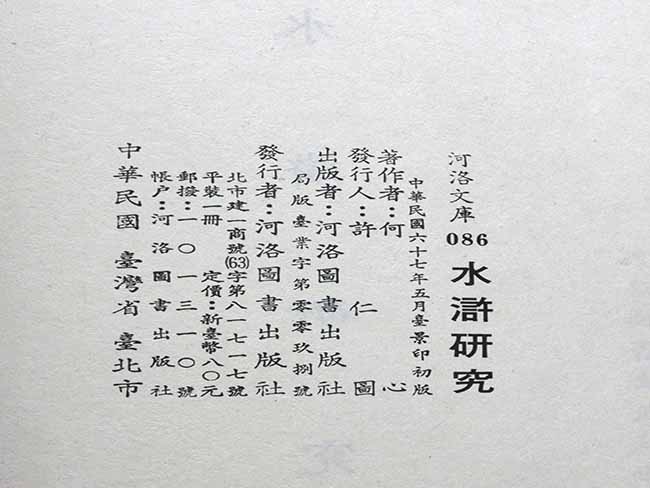 河洛文庫 086 水滸研究
中華民國六十七年五月臺景印初版
著作者：何心
發行人：許仁圖
出版者：河洛圖書出版社
局版臺業字第零零玖捌號
發行者：河洛圖書出版社
北市建一商號(63)字第八一七一七號
平裝一冊 定價：新臺幣八〇元
郵撥：一〇一三一一〇號
帳户：河洛圖書出版社
中華民國 臺灣省 臺北市